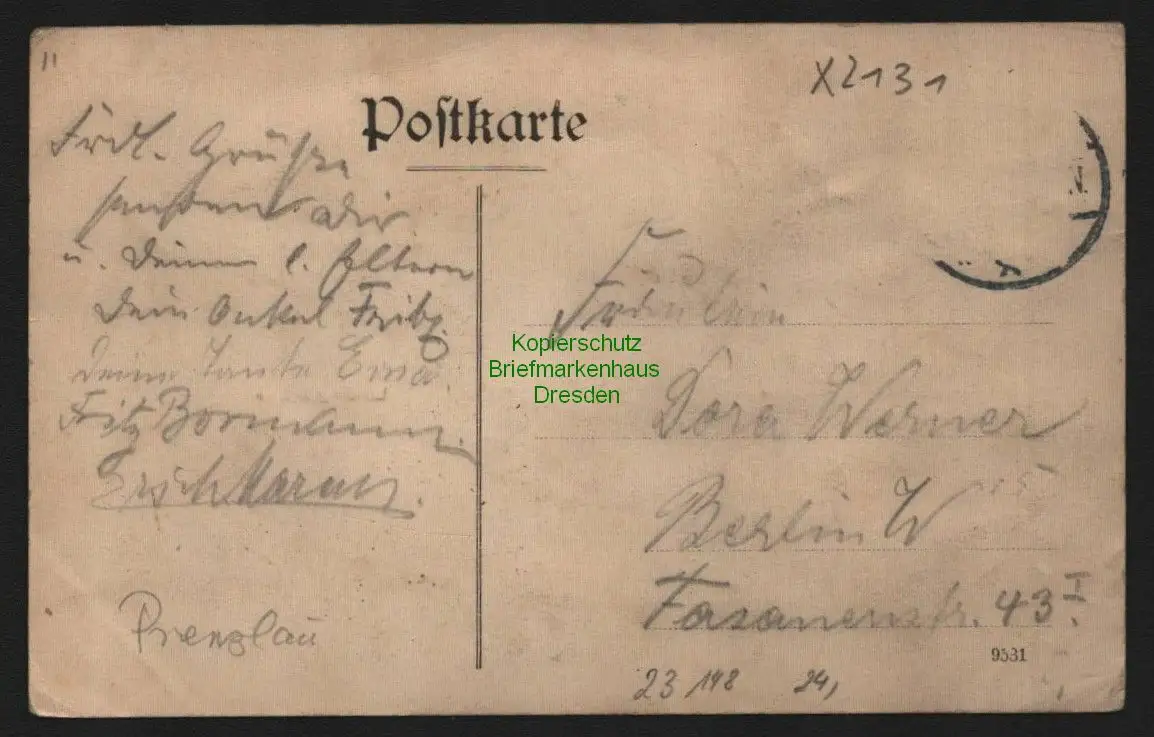 11
X2131
Postkarte
Frdl. Grüße
senden Dir
u. Deinen l. Eltern
Dein Onkel Fritz.
Deine Tante
Fritz
Erich
Prenzlau
Fräulein
Dora Werner
Berlin W 15
Fasanenstr. 43 I.
9531
23 /198 24,
Kopierschutz
Briefmarkenhaus
Dresden